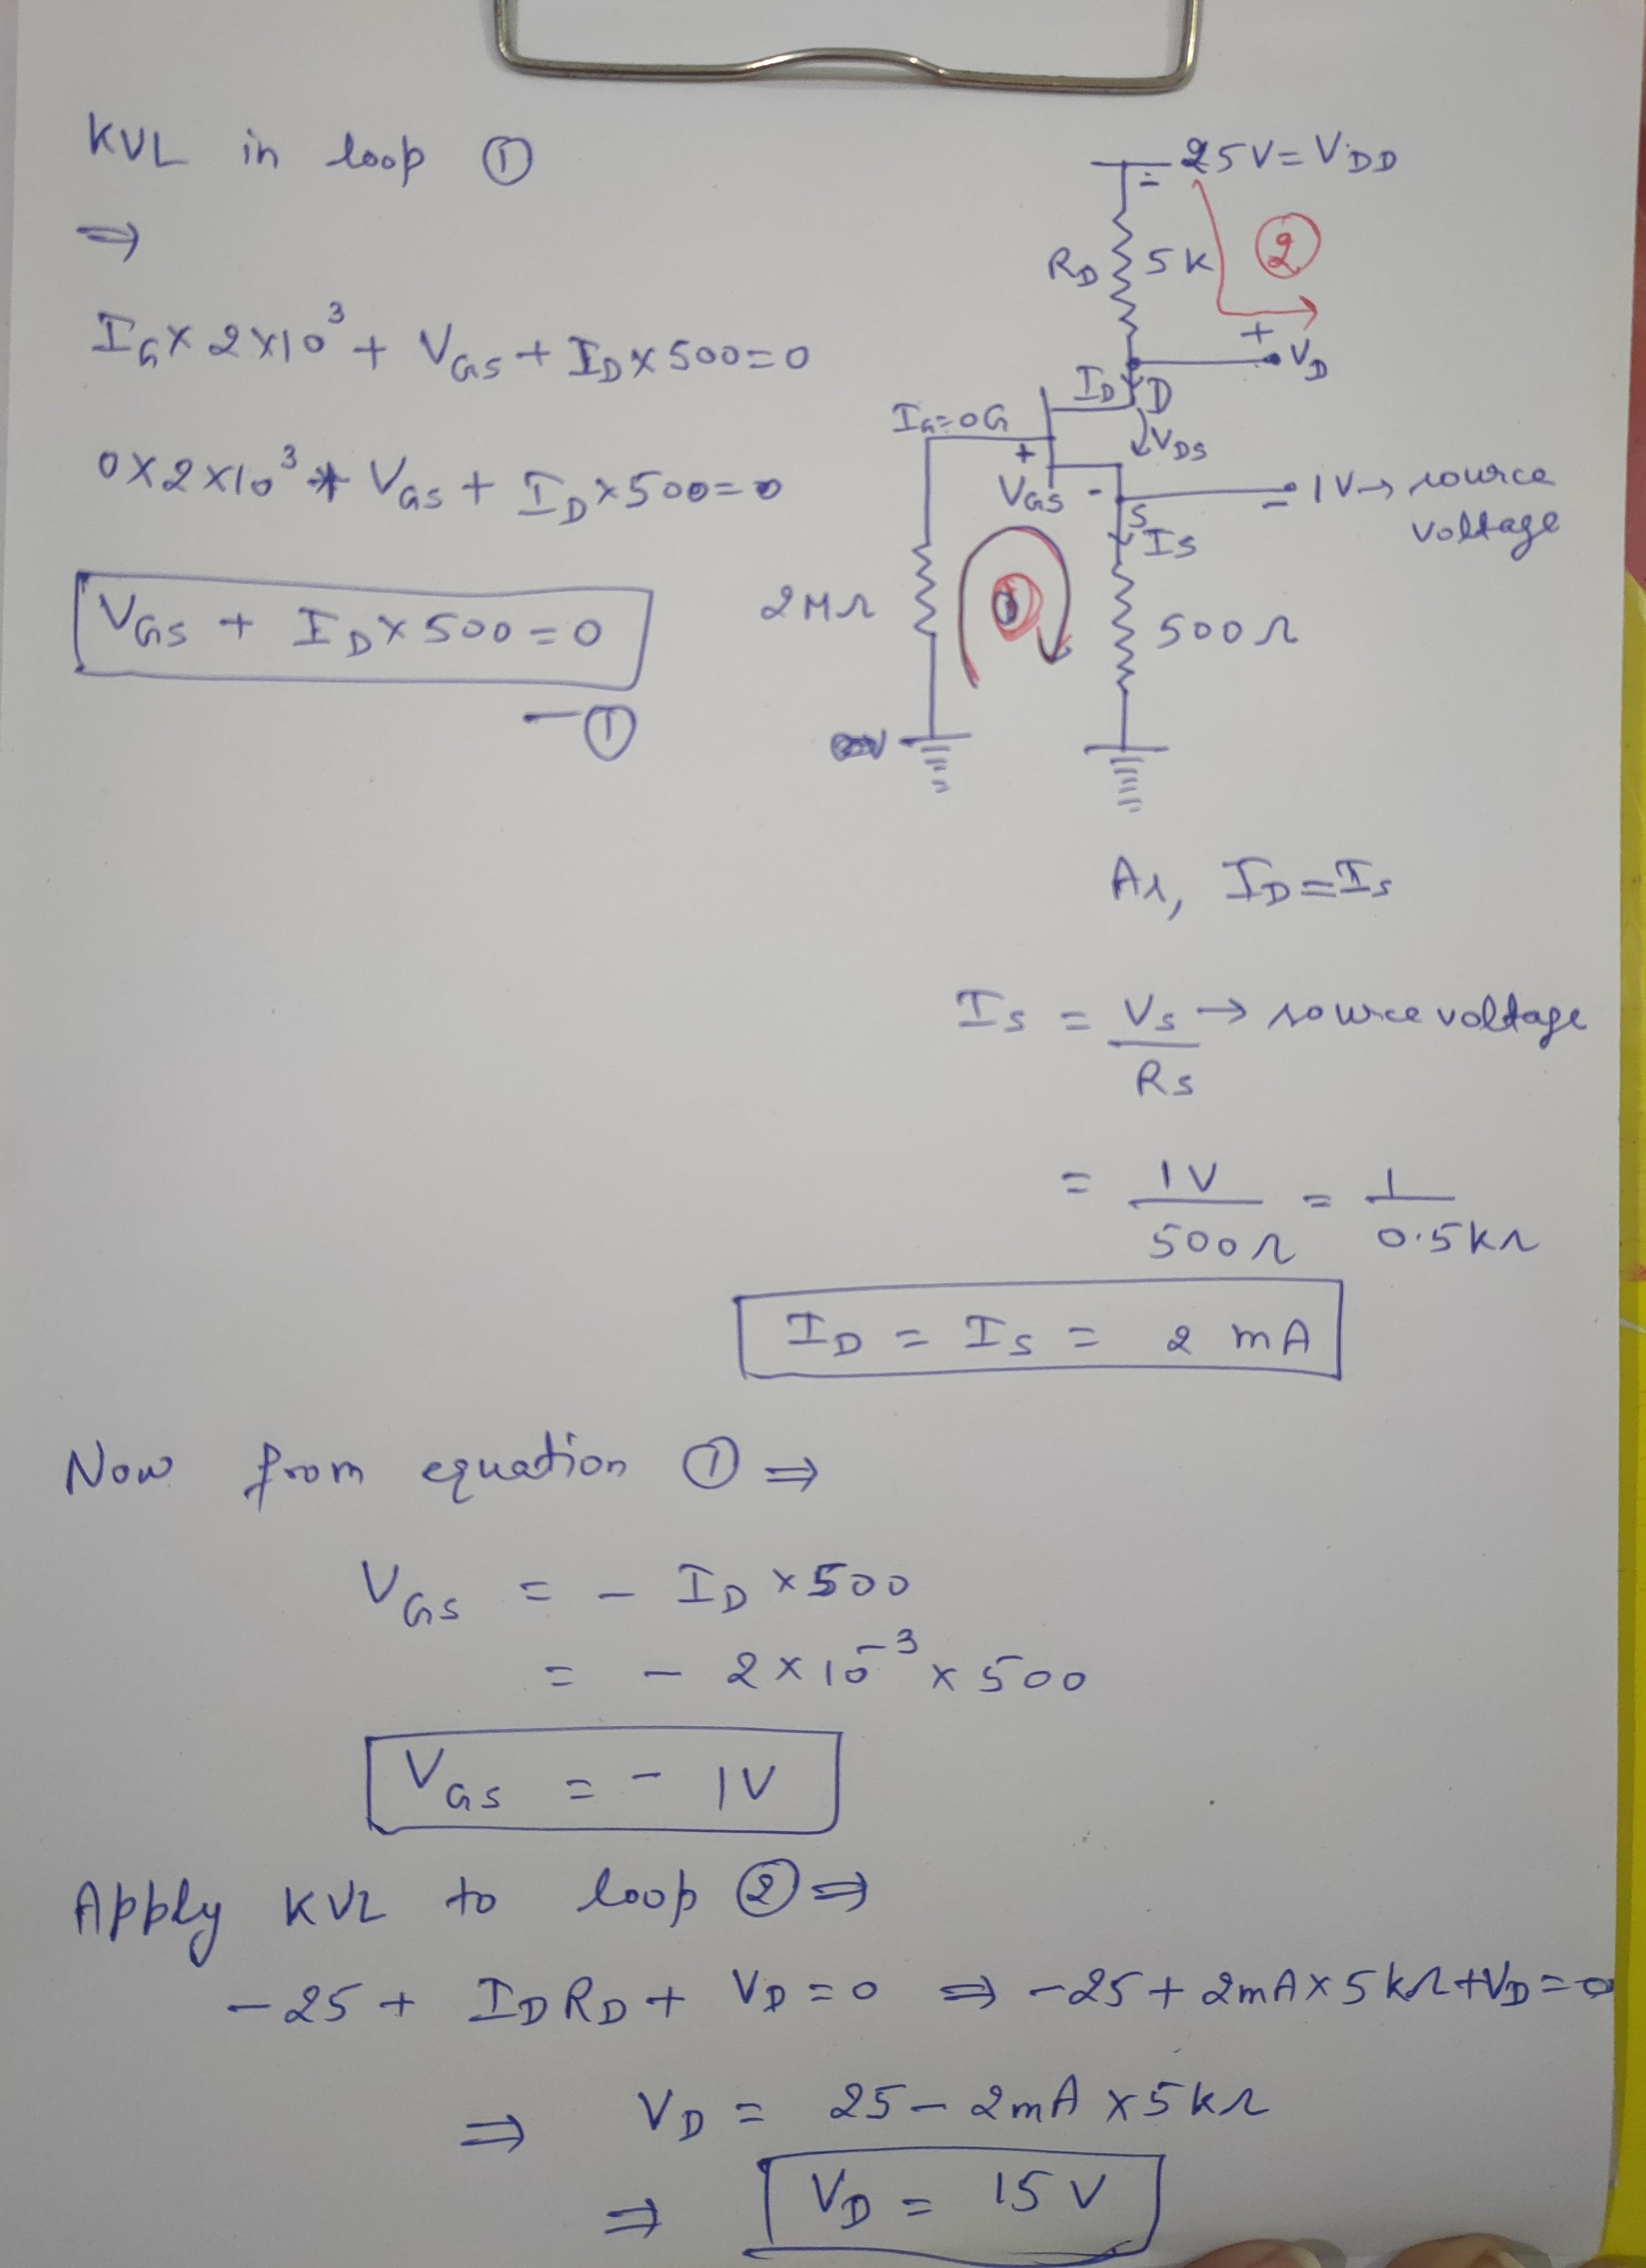 KVL in loop ①
⇒
I_G × 2×10³ + V_GS + I_D × 500 = 0
0×2×10³ + V_GS + I_D × 500 = 0
V_GS + I_D × 500 = 0
— ①
25V = V_DD
R_D 5K
②
+
V_D
I_D D
I_G=0 G
V_DS
+
V_GS -
1V → source
voltage
S
I_S
2MΩ
①
500Ω
As, I_D = I_S
I_S = V_S → source voltage
R_S
= 1V = 1
500Ω 0.5kΩ
I_D = I_S = 2 mA
Now from equation ① ⇒
V_GS = - I_D × 500
= - 2×10⁻³ × 500
V_GS = - 1V
Apply KVL to loop ② ⇒
-25 + I_D R_D + V_D = 0 ⇒ -25 + 2mA × 5kΩ + V_D = 0
⇒ V_D = 25 - 2mA × 5kΩ
⇒ V_D = 15 V